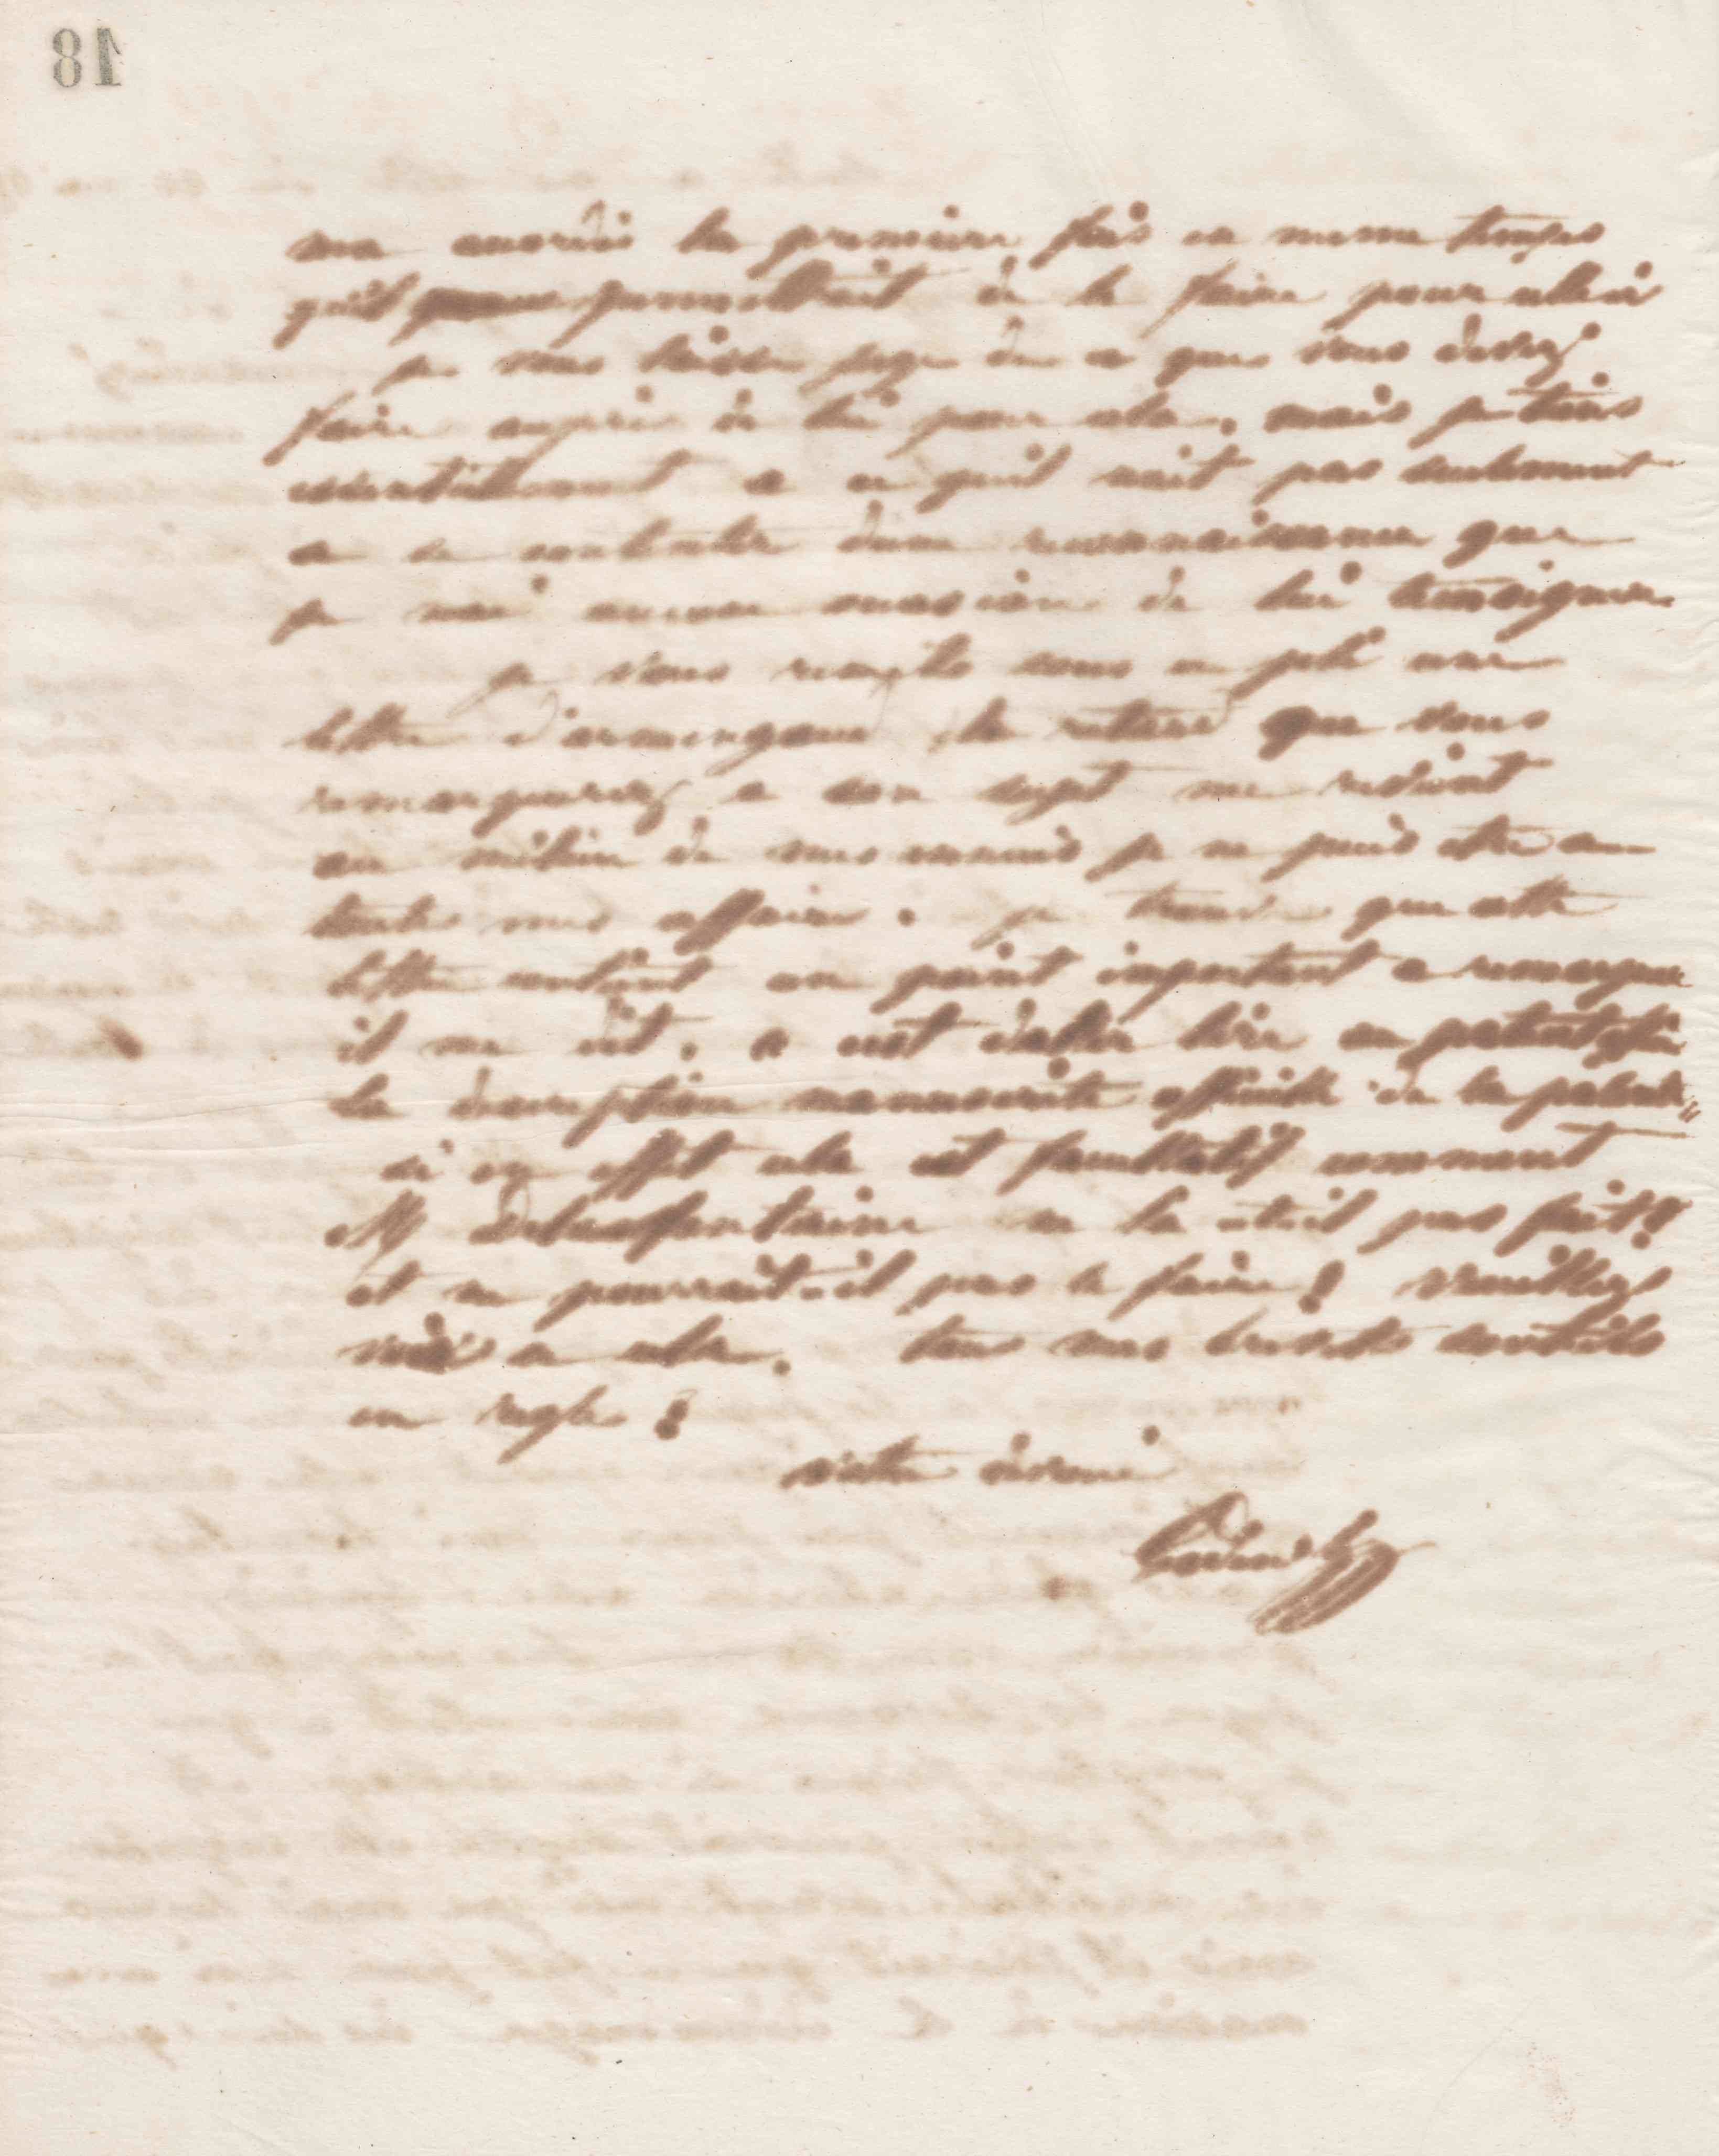 18
ma la première fois en meme temps
qu'il permettrait de le faire pour celui
je vous laisse juge de ce que vous devez
faire auprès de lui pour cela, mais je tiens
essentiellement a ce qu'il nait pas seulement
a se contenter dune reconnaissance que
je nai aucune occasion de lui temoigner.
je vous remets sous ce pli une
lettre d'armengaud le que vous
remarquerez a son sujet me revient
au milieu de mes ennuis je ne puis etre a
toutes mes affaires. je trouve que cette
lettre contient un point important a remarquer
il me dit, cest daller lire au patent office
la description manuscrite officielle de la patente
si en effet cela est facultatif comment
Mr Delesfontaine ne la t'il pas fait?
et ne pourrait-il pas le faire? veuillez
voir a cela. tous mes brevets sontils
en regle?
votre dévoué
Godin